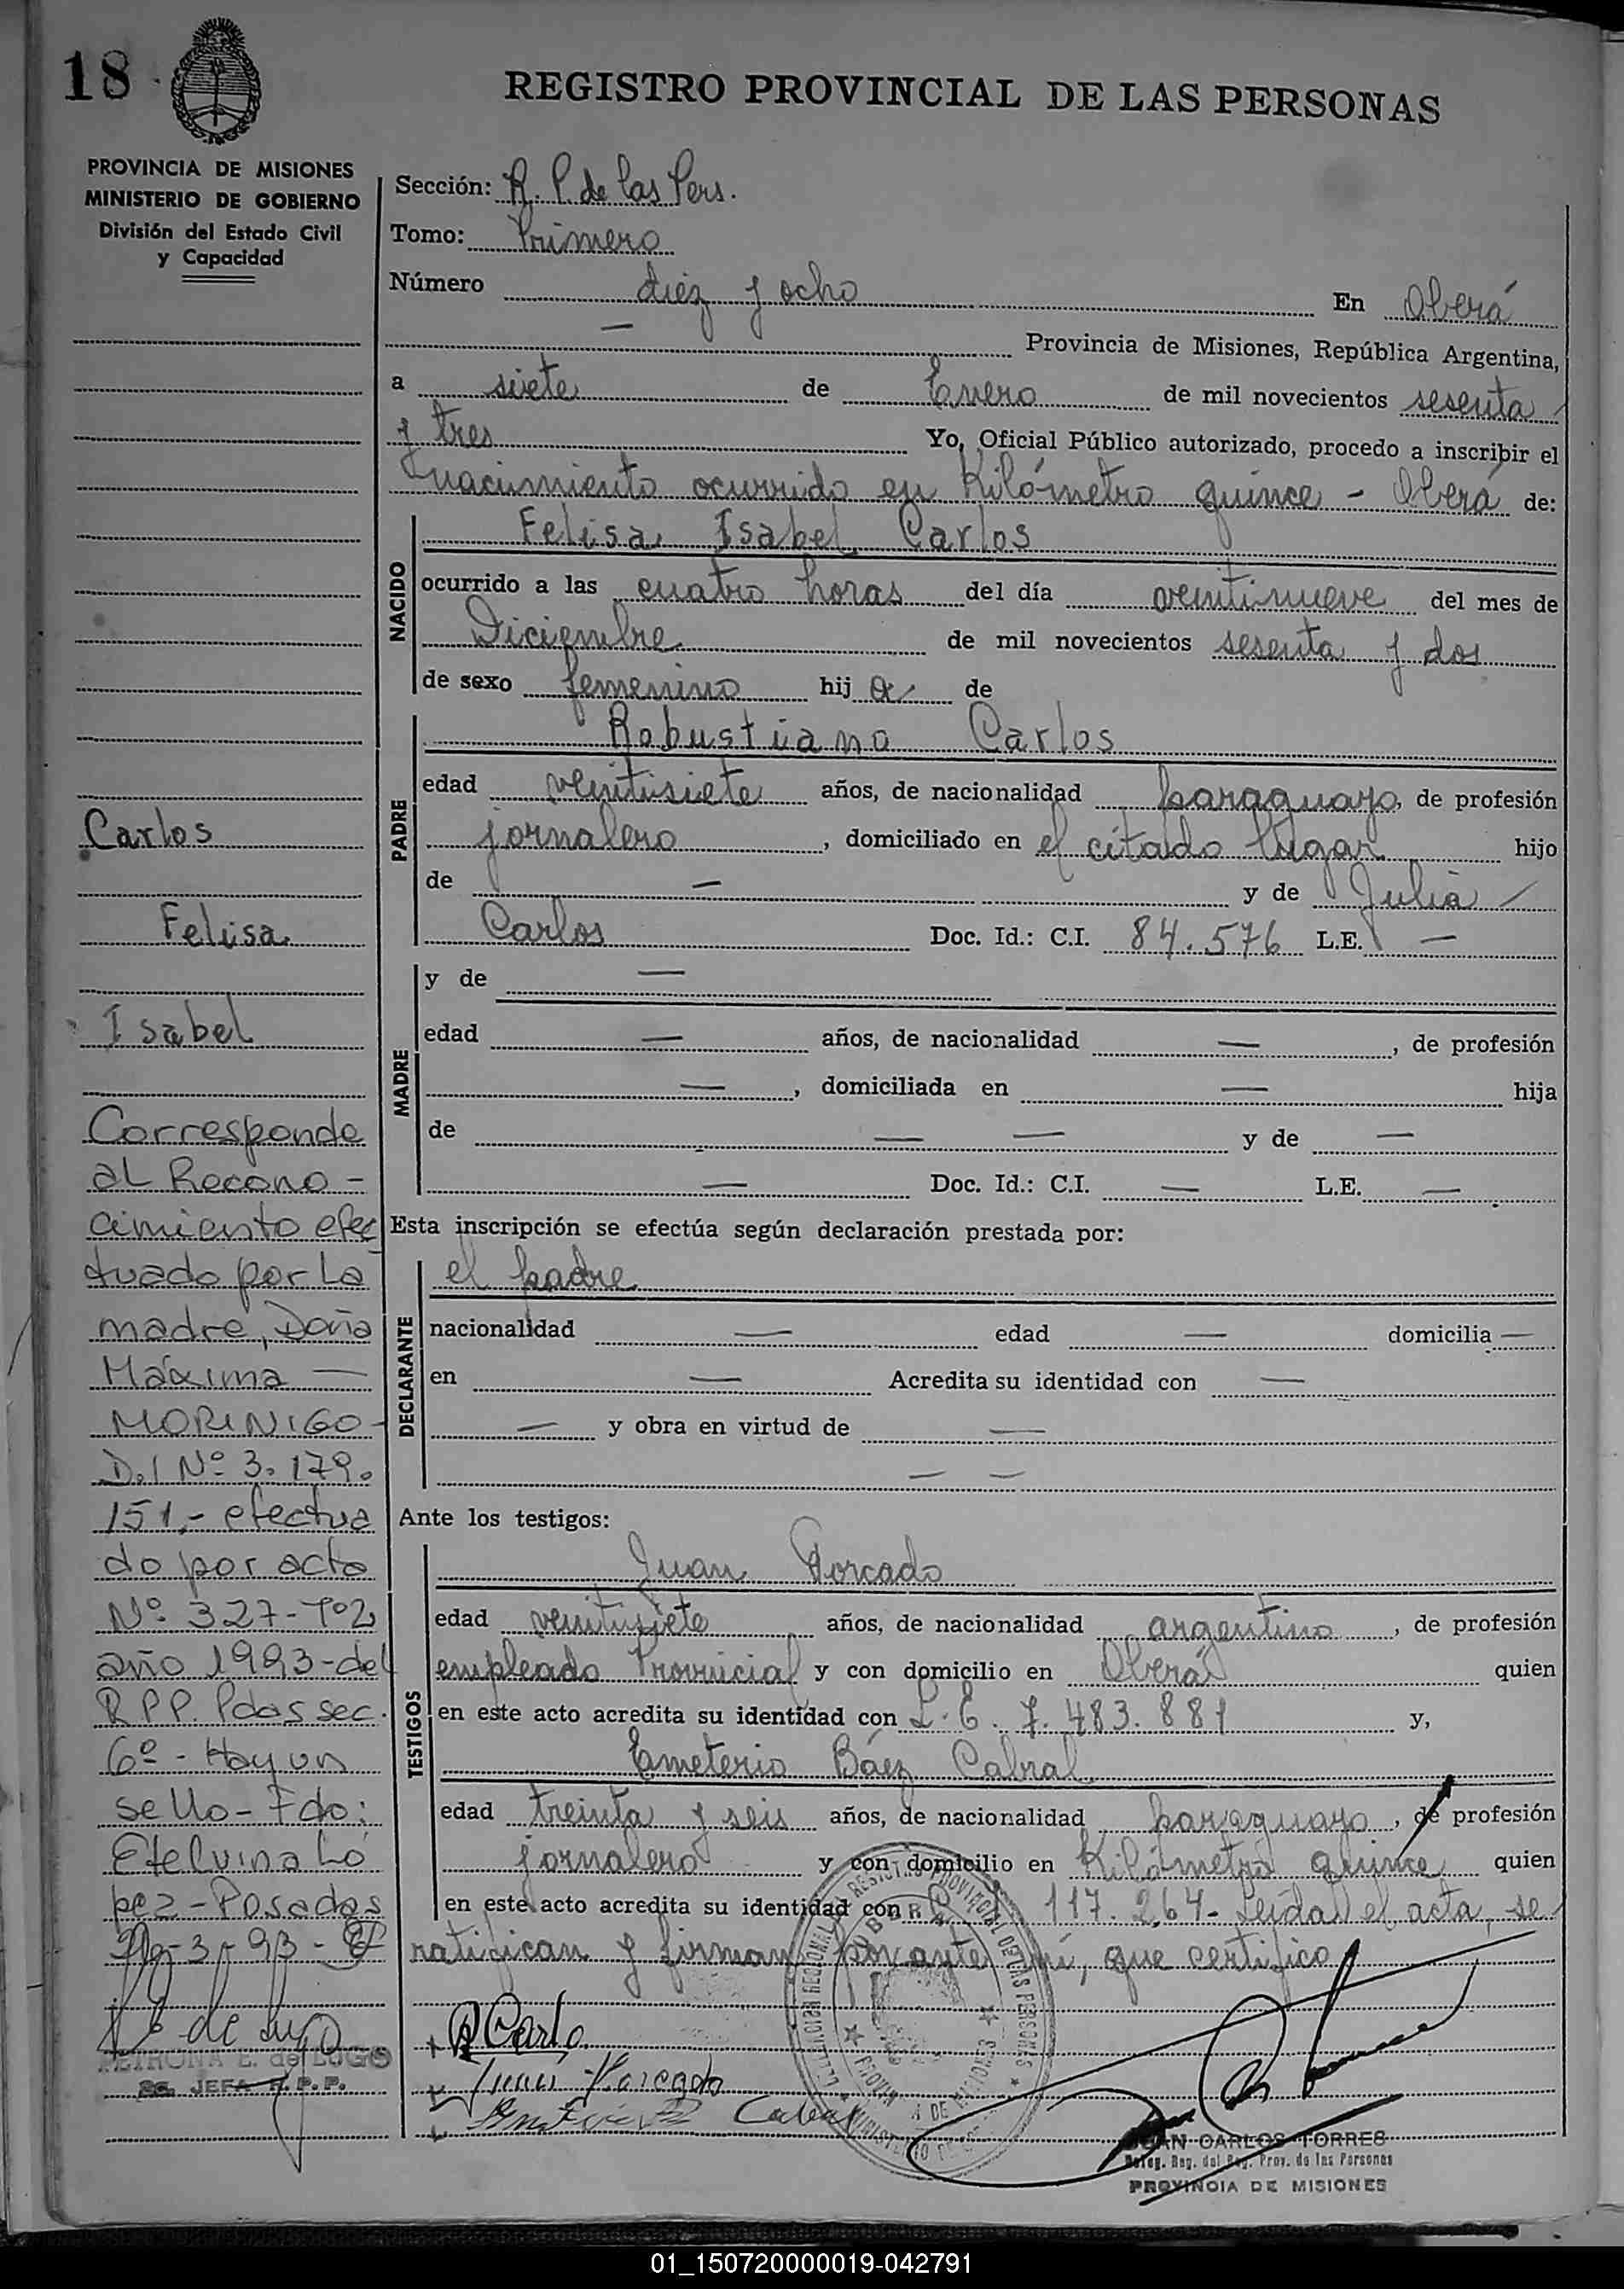 18
REGISTRO PROVINCIAL DE LAS PERSONAS
PROVINCIA DE MISIONES
MINISTERIO DE GOBIERNO
División del Estado Civil
y Capacidad
Sección: R. P. de las Pers.
Tomo: Primero
Número diez y ocho En Oberá
— Provincia de Misiones, República Argentina,
a siete de Enero de mil novecientos sesenta
y tres Yo, Oficial Público autorizado, procedo a inscribir el
nacimiento ocurrido en Kilómetro quince - Oberá de:
NACIDO
Felisa Isabel Carlos
ocurrido a las cuatro horas del día veintinueve del mes de
Diciembre de mil novecientos sesenta y dos
de sexo femenino hij a de
PADRE
Robustiano Carlos
edad veintisiete años, de nacionalidad paraguayo, de profesión
jornalero, domiciliado en el citado lugar hijo
de — y de Julia
Carlos Doc. Id.: C.I. 84.576 L.E. —
MADRE
y de —
edad — años, de nacionalidad —, de profesión
—, domiciliada en — hija
de — — y de —
— Doc. Id.: C.I. — L.E. —
Esta inscripción se efectúa según declaración prestada por:
DECLARANTE
el padre
nacionalidad — edad — domicilia —
en — Acredita su identidad con —
— y obra en virtud de —
— —
Ante los testigos:
TESTIGOS
Juan Dorcado
edad veintisiete años, de nacionalidad argentino, de profesión
empleado Provincial y con domicilio en Oberá quien
en este acto acredita su identidad con L.E. 7.483.881 y,
Emeterio Báez Cabral
edad treinta y seis años, de nacionalidad paraguayo, de profesión
jornalero y con domicilio en Kilómetro quince quien
en este acto acredita su identidad con 117.264- Leída el acta, se
ratifican y firman por ante mí, que certifico
Carlos
Felisa
Isabel
Corresponde
al Recono-
cimiento efec
tuado por la
madre, Doña
Máxima —
MORINIGO-
D.I Nº 3.179.
151,- efectua
do por acto
Nº 327-Tº2
año 1993-del
R.P.P. Pdas sec.
6º - Hay un
sello - Fdo:
Etelvina Ló
pez - Posadas
3-93-
PETRONA E. de LUGO
JEFA R.P.P.
R Carlo
Juan
Cabral
DELEGACION REGIONAL DEL REGISTRO PROVINCIAL DE LAS PERSONAS
OBERA
JUAN CARLOS TORRES
Deleg. Reg. del Reg. Prov. de las Personas
PROVINCIA DE MISIONES
01_150720000019-042791